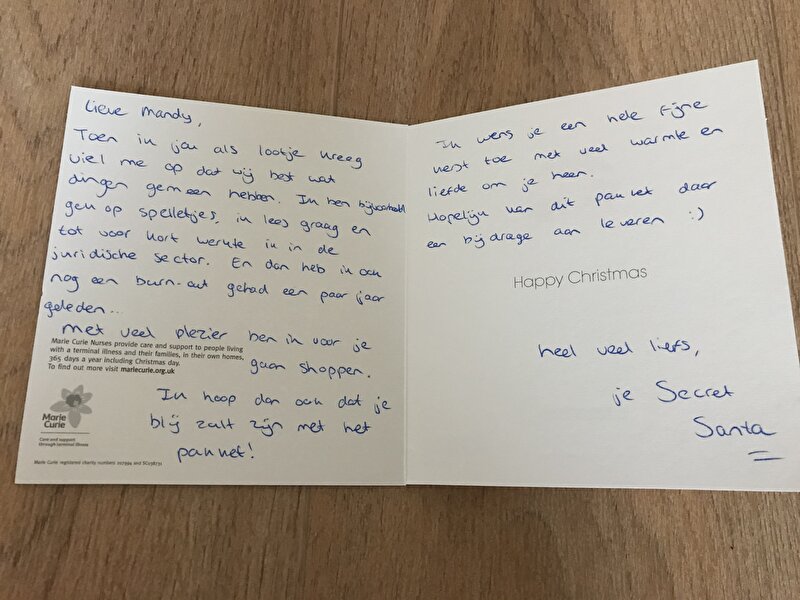 Lieve Mandy,
Toen ik jou als lootje kreeg
viel me op dat wij best wat
dingen gemeen hebben. Ik ben bijvoorbeeld
gek op spelletjes, ik lees graag en
tot voor kort werkte ik in de
juridische sector. En dan heb ik ook
nog een burn-out gehad een paar jaar
geleden...
Met veel plezier ben ik voor je
gaan shoppen.
Ik hoop dan ook dat je
blij zalt zijn met het
pakket!
Marie Curie Nurses provide care and support to people living
with a terminal illness and their families, in their own homes,
365 days a year including Christmas day.
To find out more visit mariecurie.org.uk
Marie
Curie
Care and support
through terminal illness
Marie Curie registered charity numbers 207994 and SC038731
Ik wens je een hele fijne
kerst toe met veel warmte en
liefde om je heen.
Hopelijk kan dit pakket daar
een bijdrage aan leveren :)
Happy Christmas
heel veel liefs,
je Secret
Santa